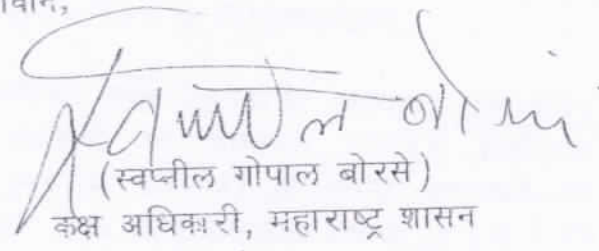 (स्वप्नील गोपाल बोरसे)
कक्ष अधिकारी, महाराष्ट्र शासन